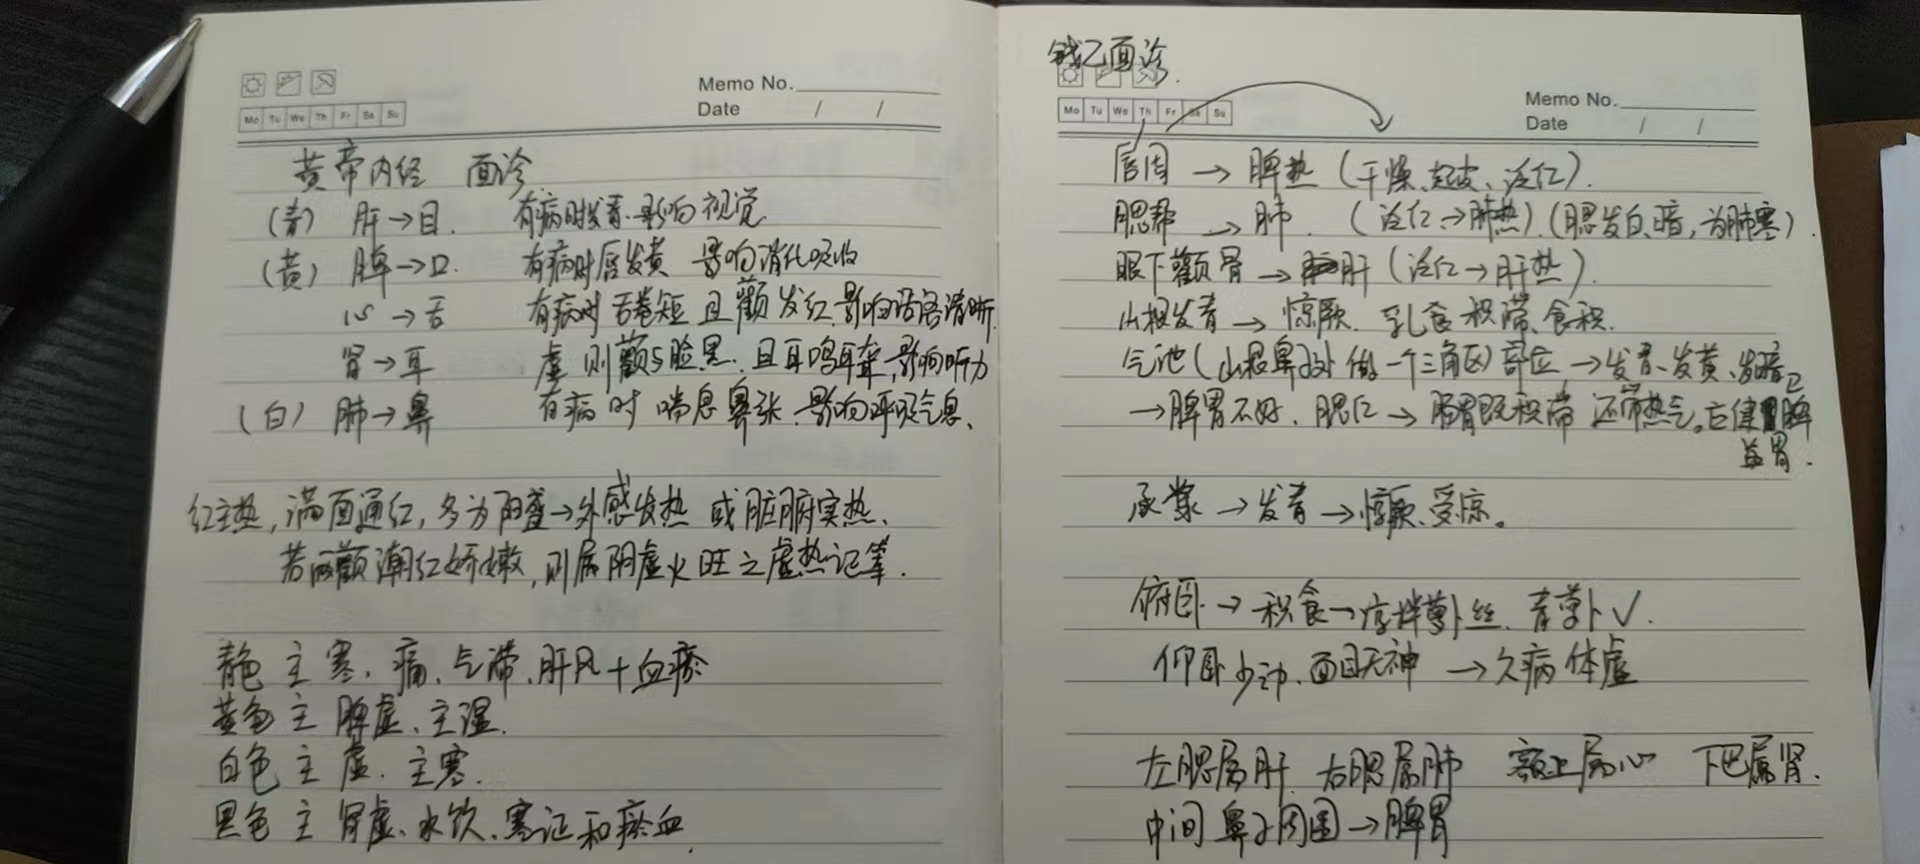 Memo No.
Mo Tu We Th Fr Sa Su
Date / /
黄帝内经 面诊
(青) 肝→目. 有病时发青.影响视觉
(黄) 脾→口. 有病时唇发黄 影响消化吸收
心→舌 有病时舌卷短 且颧发红.影响语言清晰.
肾→耳 虚则颧与脸黑.且耳鸣耳聋.影响听力
(白) 肺→鼻 有病时喘息鼻张.影响呼吸气息、
红主热,满面通红,多为阳盛→外感发热 或脏腑实热、
若两颧潮红娇嫩,则属阴虚火旺之虚热证等.
青色主寒、痛、气滞、肝风+血瘀
黄色主脾虚、主湿.
白色主虚.主寒.
黑色主肾虚、水饮、寒证和瘀血.
钱乙面诊.
Memo No.
Mo Tu We Th Fr Sa Su
Date / /
唇周→脾热(干燥、起皮、泛红).
腮帮→肺.(泛红→肺热).(腮发白、暗,为肺寒).
眼下颧骨→肝(泛红→肝热).
山根发青→惊厥.乳食积滞、食积.
气池(山根鼻子处 一个三角区)部位→发青、发黄、发暗
→脾胃不好.腮红→肠胃既积滞 还带热气。 健脾
益胃.
承浆→发青→惊厥、受惊。
俯卧→积食→凉拌萝卜丝.青萝卜√.
仰卧少动、面目无神→久病体虚
左腮属肝.右腮属肺 额上属心 下巴属肾.
中间鼻子周围→脾胃